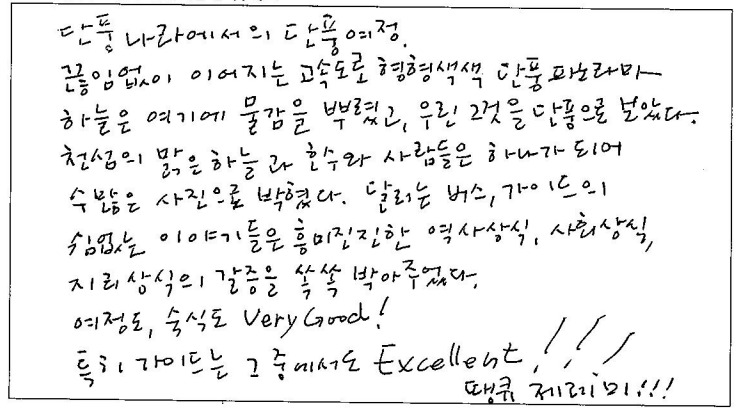 단풍나라에서의 단풍여정.
끊임없이 이어지는 고속도로 형형색색 단풍파노라마
하늘은 여기에 물감을 뿌렸고, 우린 그것을 단풍으로 보았다.
천섬의 맑은하늘과 호수와 사람들은 하나가 되어
수많은 사진으로 박혔다. 달리는 버스, 가이드의
쉼없는 이야기들은 흥미진진한 역사상식, 사회상식,
지리상식의 갈증을 쏙쏙 박아주었다.
여정도, 숙식도 Very Good!
특히 가이드는 그 중에서도 Excellent!!!
땡큐 제레미!!!